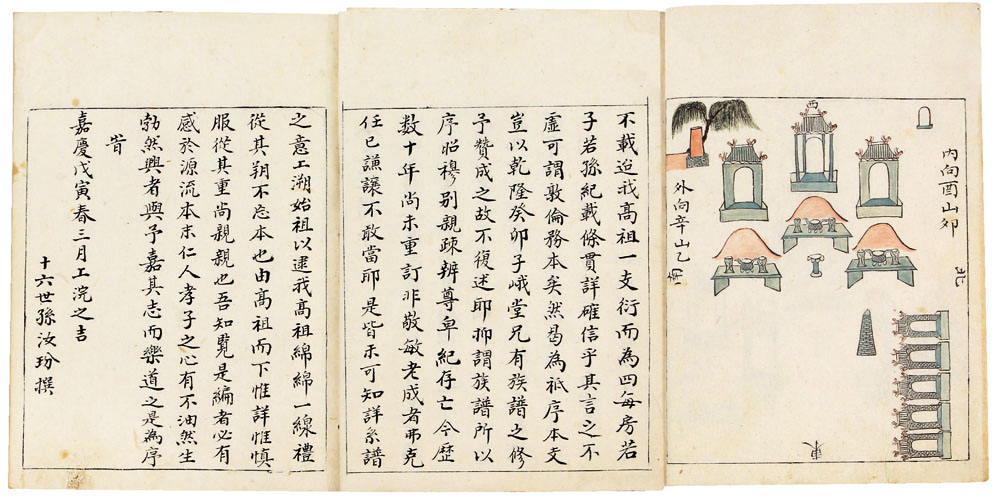 内向酉山卯
外向辛山乙
西
北
南
東
不載迨我高祖一支衍而為四每房若
子若孫紀載條貫詳確信乎其言之不
虛可謂敦倫務本矣然曷為祗序本支
豈以乾隆癸卯子峨堂兄有族譜之修
予贊成之故不復述耶抑謂族譜所以
序昭穆別親疎辨尊卑紀存亡今歷
数十年尚未重訂非敬敏老成者弗克
任已謙讓不敢當耶是皆未可知詳系譜
之意上溯始祖以逮我高祖綿綿一線禮
從其朔不忘本也由高祖而下惟詳惟慎
服從其重尚親親也吾知覽是編者必有
感於源流本末仁人孝子之心有不油然生
勃然興者與予嘉其志而樂道之是為序
旹
嘉慶戊寅春三月上浣之吉
十六世孫汝玢撰